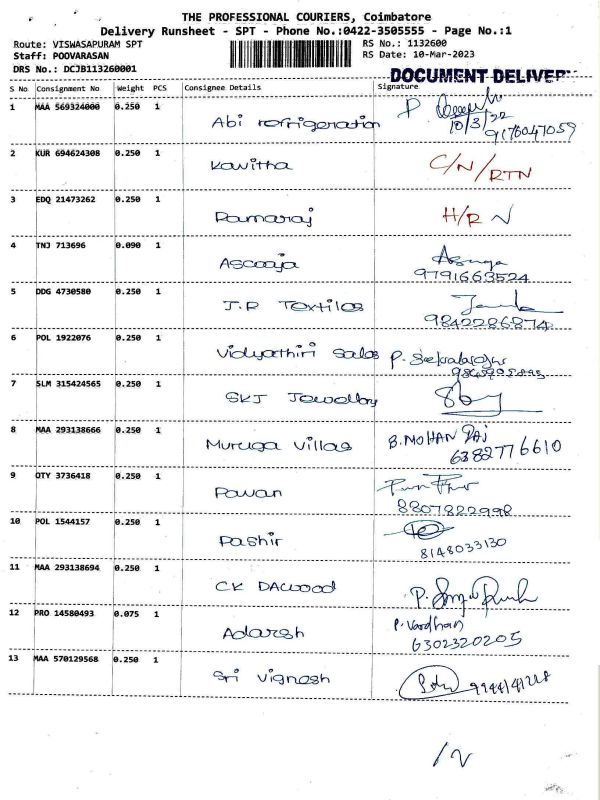 THE PROFESSIONAL COURIERS, Coimbatore
Delivery Runsheet - SPT - Phone No.:0422-3505555 - Page No.:1
Route: VISWASAPURAM SPT RS No.: 1132600
Staff: POOVARASAN RS Date: 10-Mar-2023
DRS No.: DCJB113260001
DOCUMENT DELIVER
S No Consignment No Weight PCS Consignee Details Signature
1 MAA 569324000 0.250 1 Abi refrigeration
10/3/22
9176047059
2 KUR 694624308 0.250 1 Kavitha C/N/RTN
3 EDQ 21473262 0.250 1 Ramaraj H/R N
4 TNJ 713696 0.090 1 Ascooja
9791663524
5 DDG 4730580 0.250 1 J.P Textiles
9842286874
6 POL 1922076 0.250 1 Vidyathiri Sales P.
7 SLM 315424565 0.250 1 SKJ Jewellery
8 MAA 293138666 0.250 1 Muruga Villas B.MOHAN RAJ
6382776610
9 OTY 3736418 0.250 1 Pavan
8807822998
10 POL 1544157 0.250 1 Bashir
8148033130
11 MAA 293138694 0.250 1 CK DAWOOD P.
12 PRO 14580493 0.075 1 Adarsh P. Vardhan
6302320205
13 MAA 570129568 0.250 1 Sri Vignesh